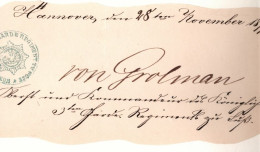 Hannover, den 28ten November 18
von Grolman
Oberst und Kommandeur des Königlich
Garde-Regiments zu Fuß.